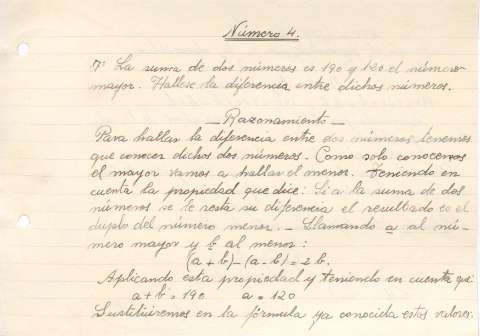 Número 4.
7º La suma de dos números es 190 y 120 el número
mayor. Hallese la diferencia entre dichos números.
_Razonamiento_
Para hallar la diferencia entre dos números tenemos
que conocer dichos dos números. Como solo conocemos
el mayor vamos a hallar el menor. Teniendo en
cuenta la propiedad que dice: Si a la suma de dos
números se le resta su diferencia el resultado es el
duplo del número menor. - Llamando a al nú-
mero mayor y b al menor:
(a + b) - (a - b) = 2 b.
Aplicando esta propiedad y teniendo en cuenta que:
a + b = 190 a = 120
Sustituiremos en la fórmula ya conocida estos valores.